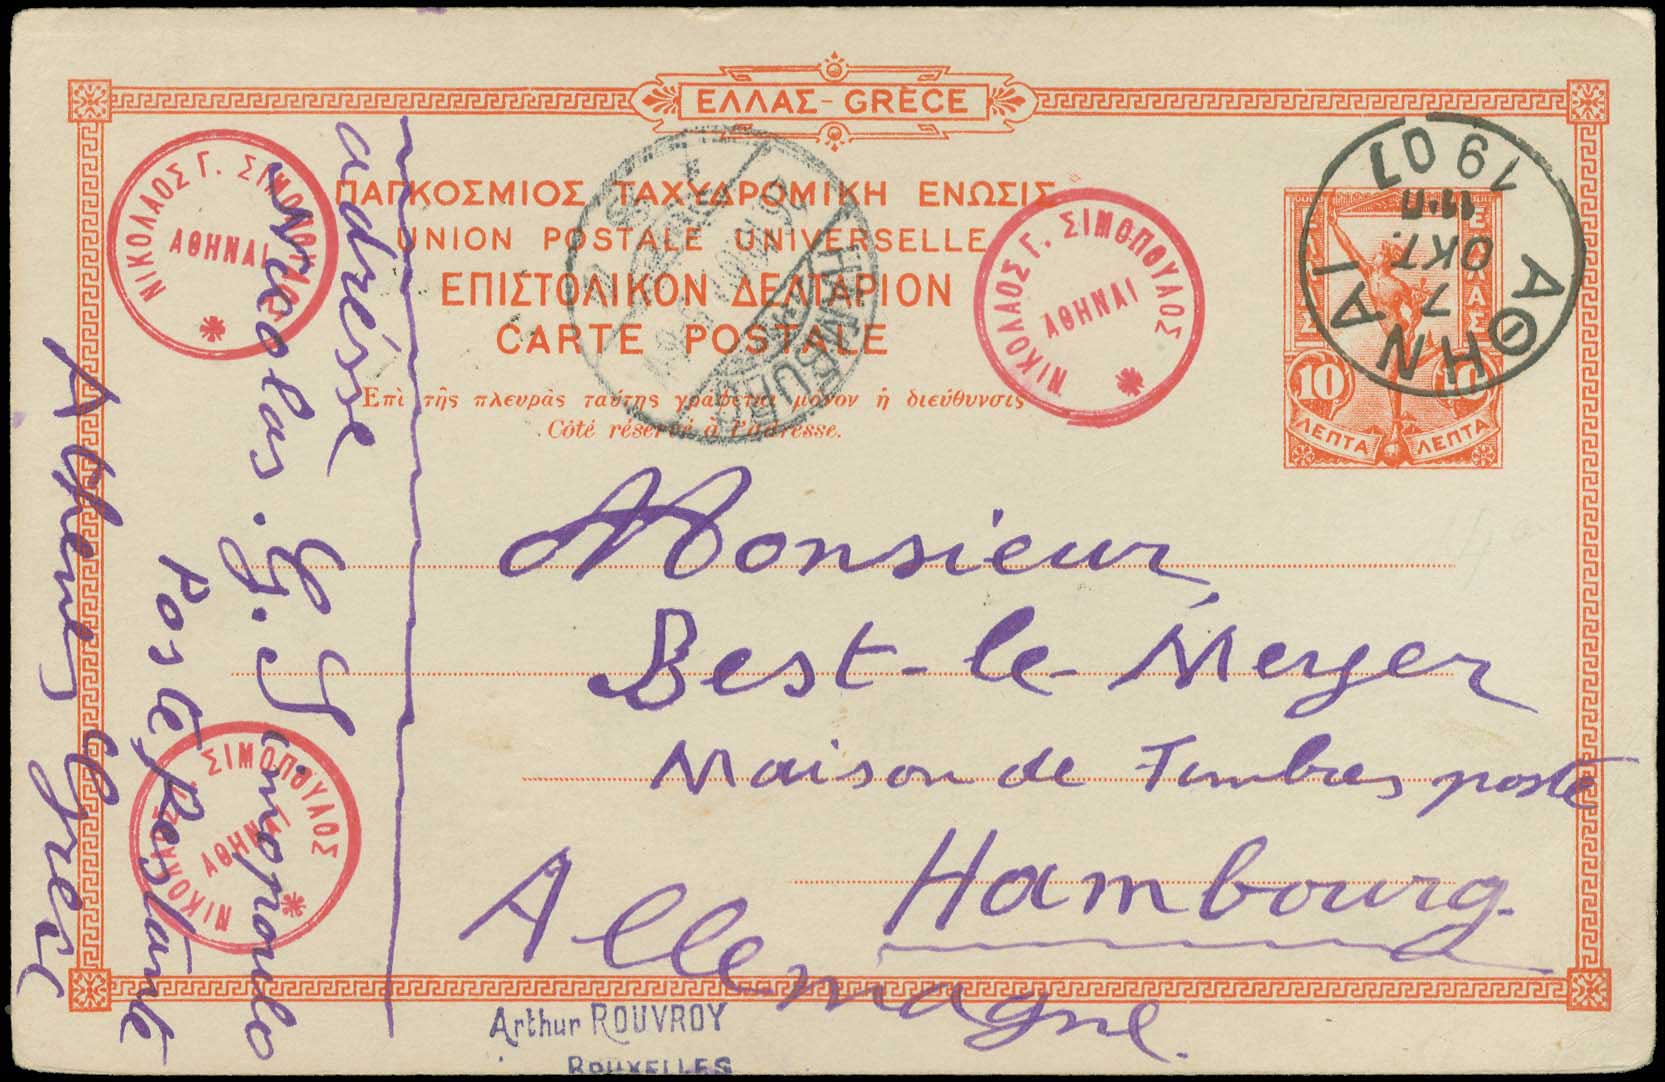 ΕΛΛΑΣ - GRÈCE
ΠΑΓΚΟΣΜΙΟΣ ΤΑΧΥΔΡΟΜΙΚΗ ΕΝΩΣΙΣ
UNION POSTALE UNIVERSELLE
ΕΠΙΣΤΟΛΙΚΟΝ ΔΕΛΤΑΡΙΟΝ
CARTE POSTALE
Ἐπὶ τῆς πλευρᾶς ταύτης γράφεται μόνον ἡ διεύθυνσις
Côté réservé à l'adresse.
ΝΙΚΟΛΑΟΣ Γ. ΣΙΜΟΠΟΥΛΟΣ
ΑΘΗΝΑΙ
ΝΙΚΟΛΑΟΣ Γ. ΣΙΜΟΠΟΥΛΟΣ
ΑΘΗΝΑΙ
ΝΙΚΟΛΑΟΣ Γ. ΣΙΜΟΠΟΥΛΟΣ
ΑΘΗΝΑΙ
HAMBURG
ΑΘΗΝΑΙ
7
ΟΚΤ.
19 07
ΕΛΛΑΣ
10 10
ΛΕΠΤΑ ΛΕΠΤΑ
Monsieur
Best-le-Meyer
Maison de Timbres poste
Hambourg.
Allemagne.
adrésse
Nicolas. G. Simopoulo
Poste Restante
Athenes Grèce
Arthur ROUVROY
BRUXELLES